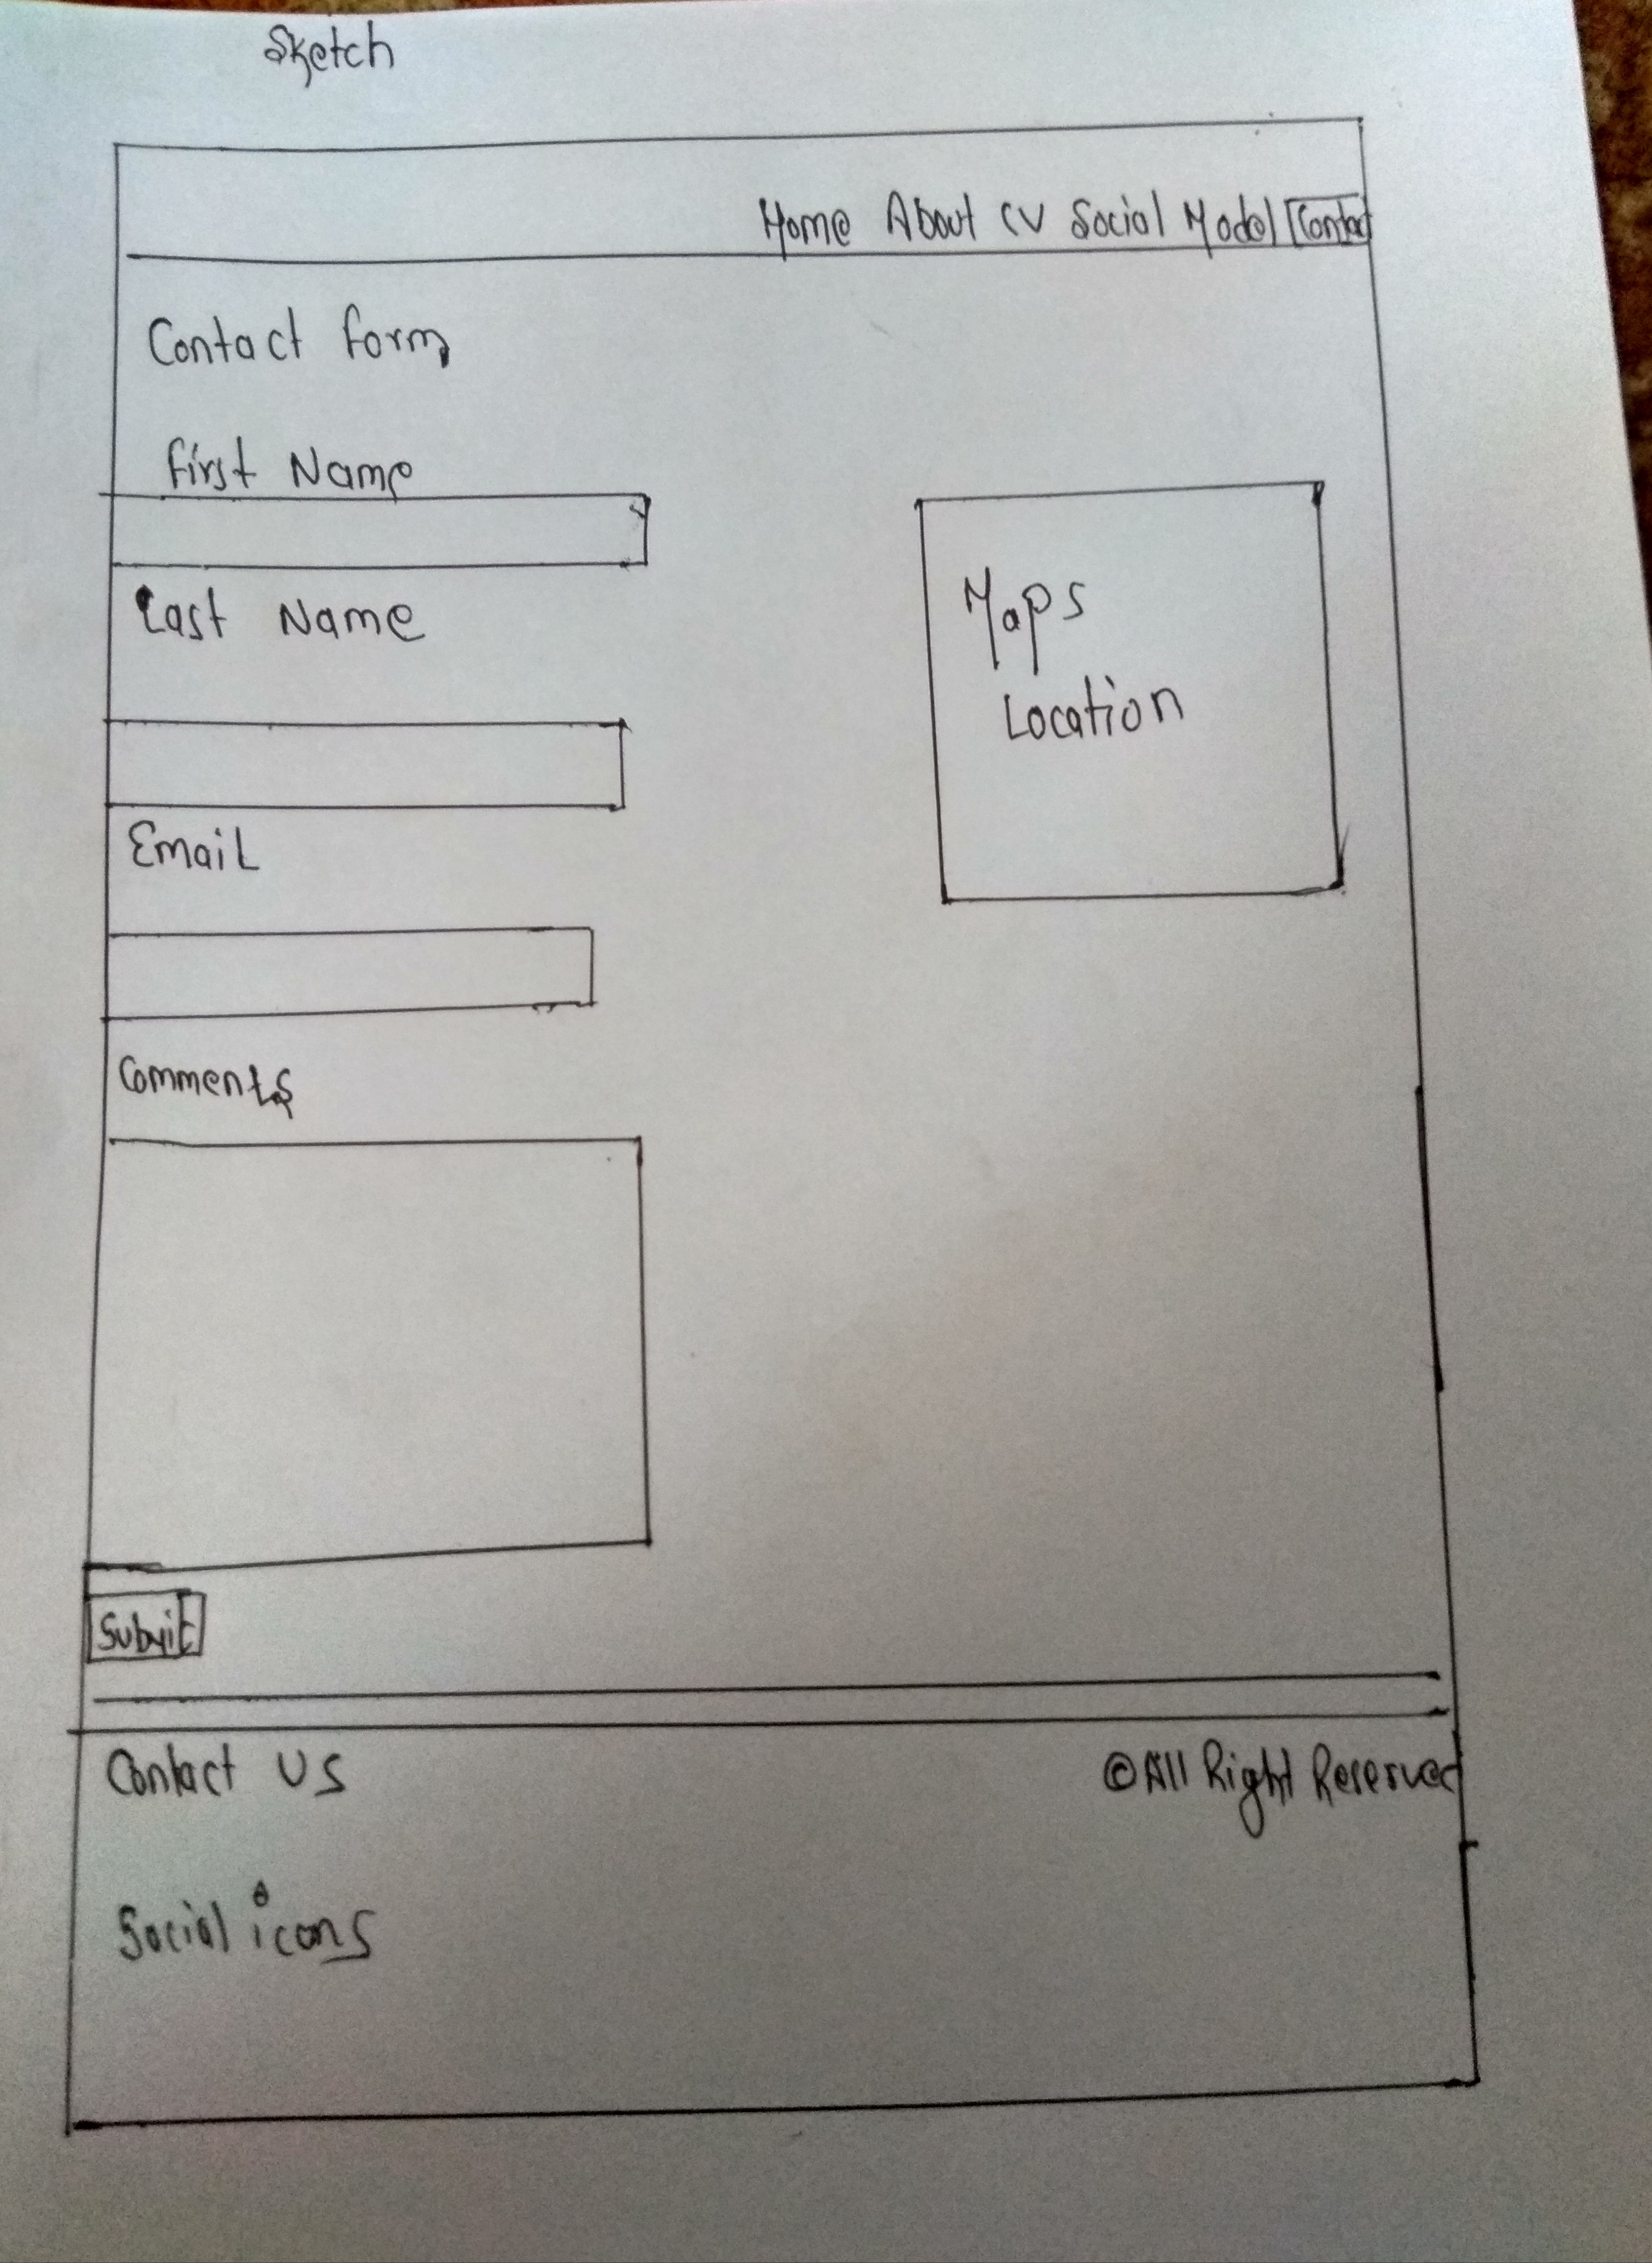 Sketch
Home About CV Social Model Contact
Contact form
First Name
Last Name
Maps
Location
Email
Comments
Submit
Contact US
©All Right Reserved
Social icons